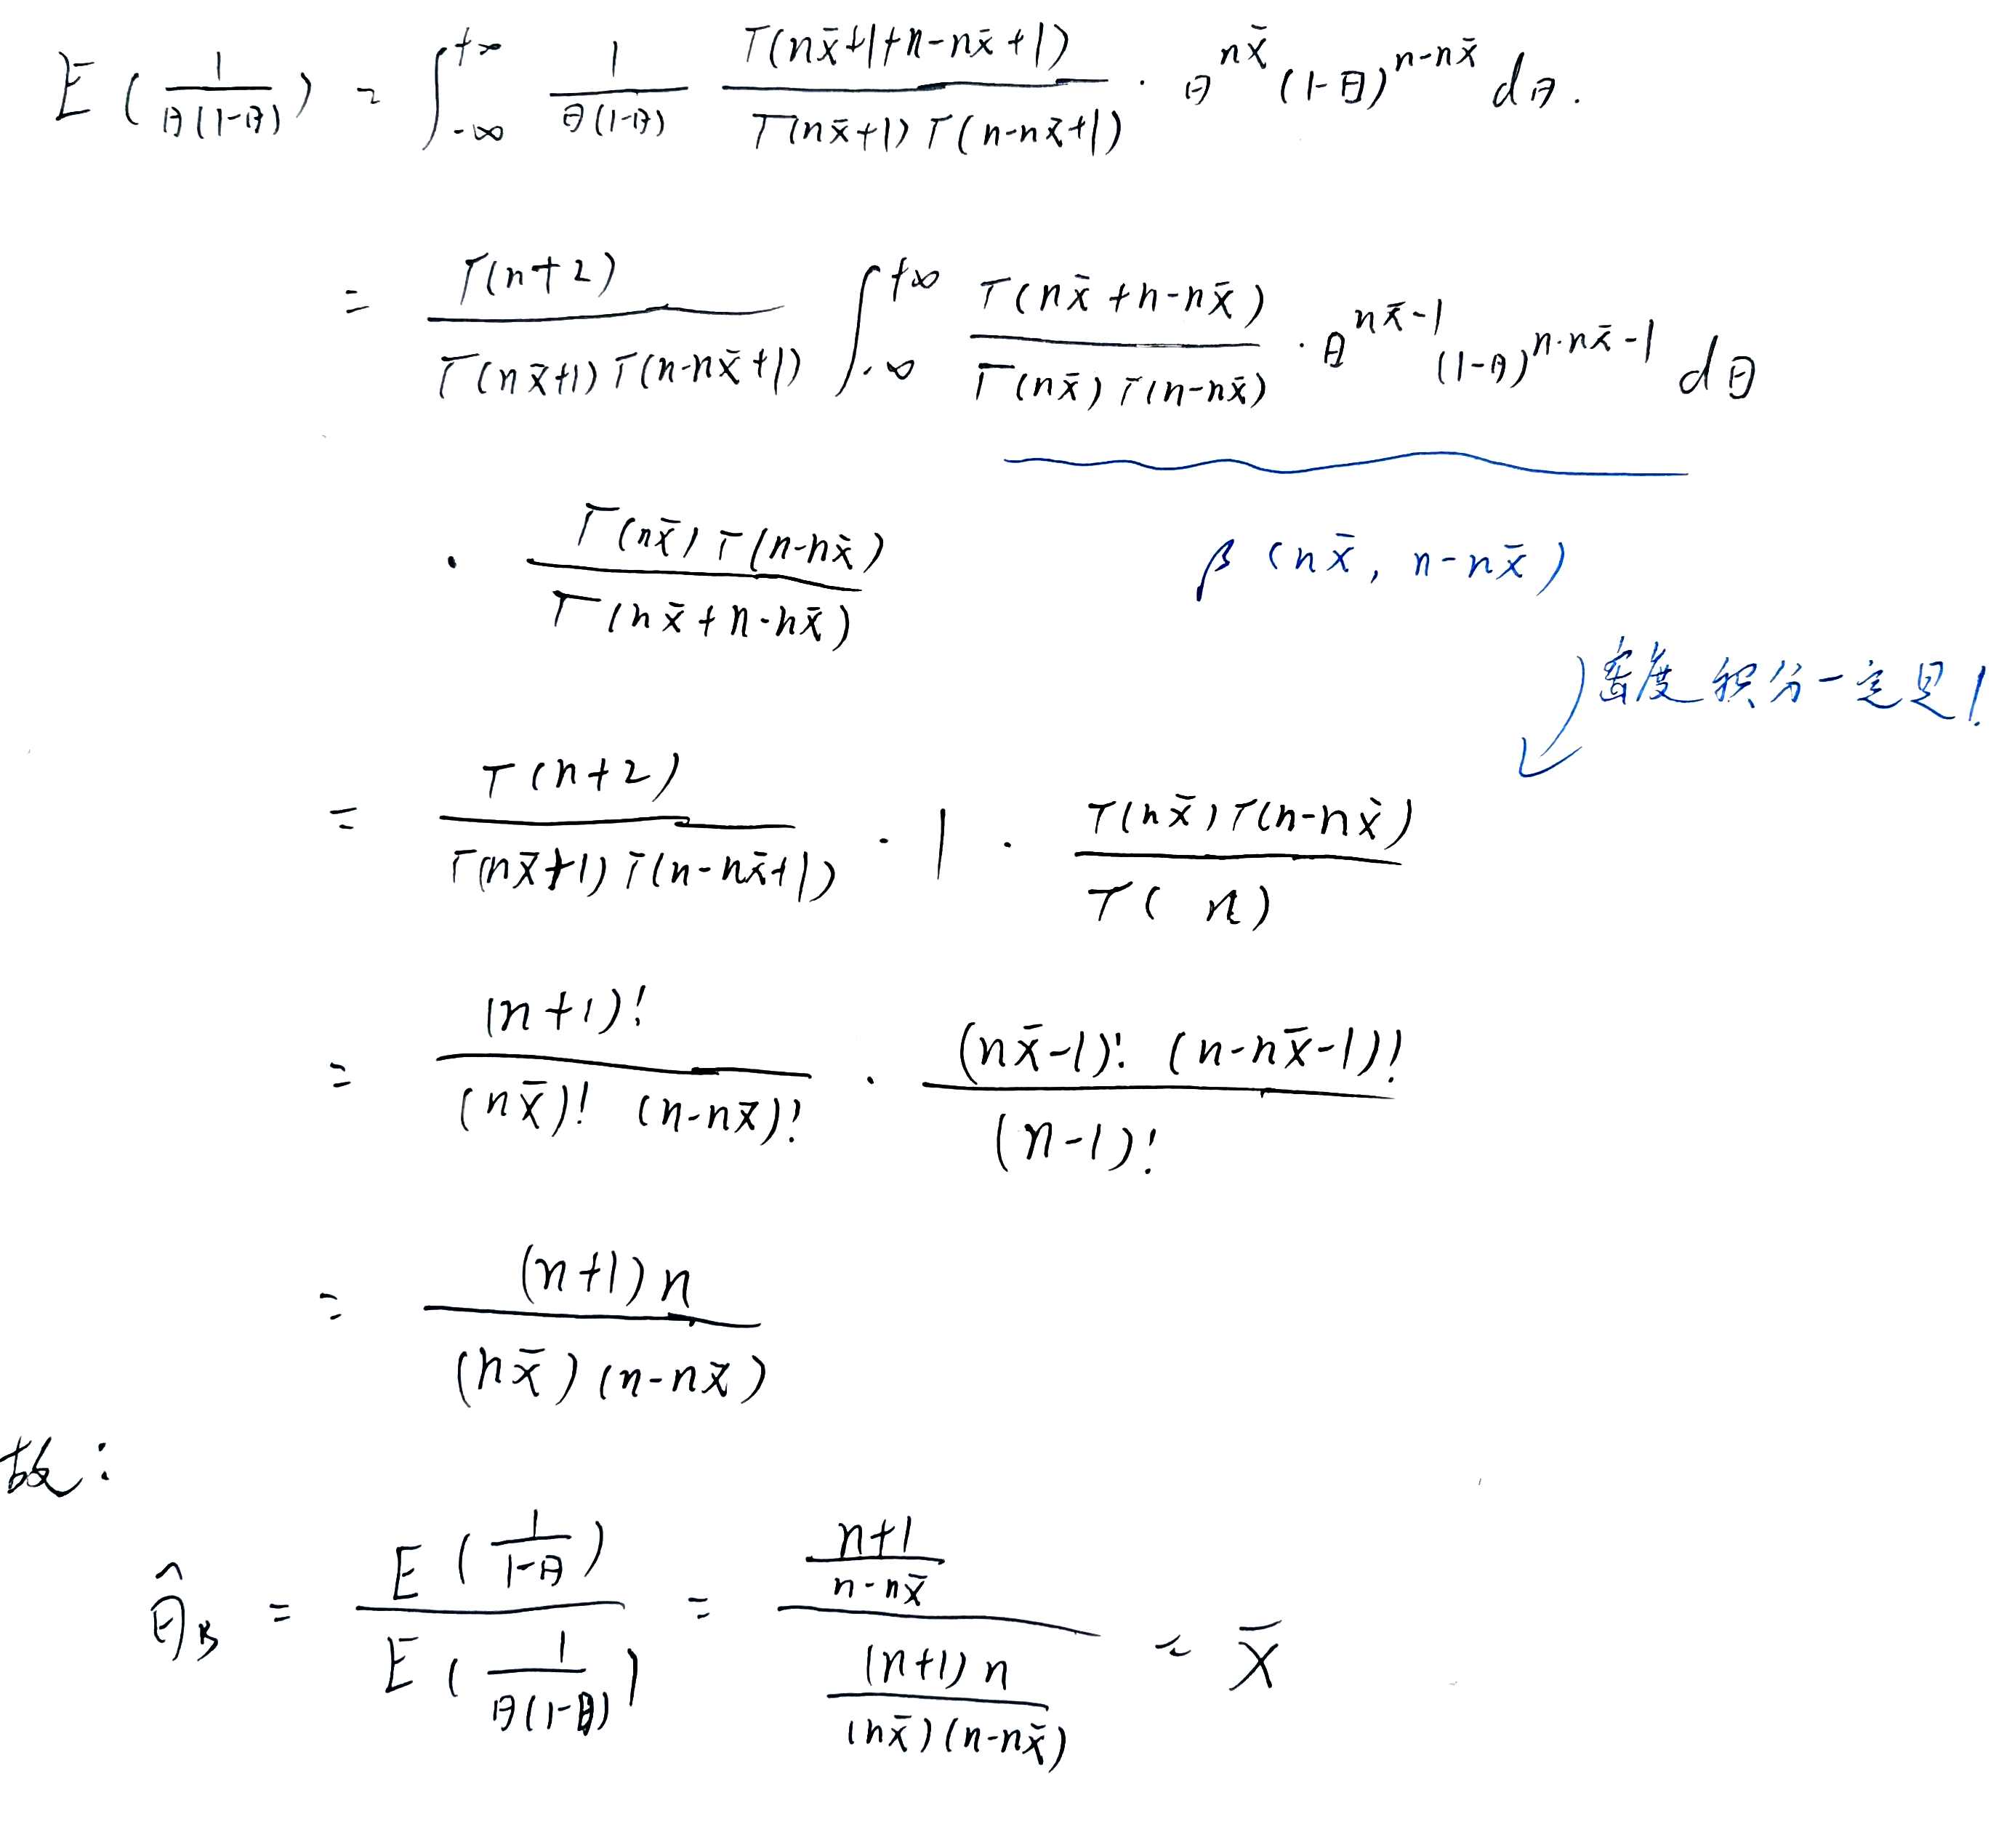 E(1/(θ(1-θ))) = ∫_{-∞}^{+∞} 1/(θ(1-θ)) Γ(nx̄+1+n-nx̄+1)/(Γ(nx̄+1)Γ(n-nx̄+1)) · θ^{nx̄} (1-θ)^{n-nx̄} dθ.
= Γ(n+2)/(Γ(nx̄+1)Γ(n-nx̄+1)) ∫_{-∞}^{+∞} Γ(nx̄+n-nx̄)/(Γ(nx̄)Γ(n-nx̄)) · θ^{nx̄-1} (1-θ)^{n-nx̄-1} dθ
· Γ(nx̄)Γ(n-nx̄)/Γ(nx̄+n-nx̄)
β(nx̄, n-nx̄)
密度积分一定是1
= Γ(n+2)/(Γ(nx̄+1)Γ(n-nx̄+1)) · 1 · Γ(nx̄)Γ(n-nx̄)/Γ(n)
= (n+1)!/((nx̄)! (n-nx̄)!) · (nx̄-1)! (n-nx̄-1)!/(n-1)!
= (n+1)n/((nx̄)(n-nx̄))
故:
θ̂_B = E(1/(1-θ))/E(1/(θ(1-θ))) = ((n+1)/(n-nx̄))/((n+1)n/((nx̄)(n-nx̄))) = x̄